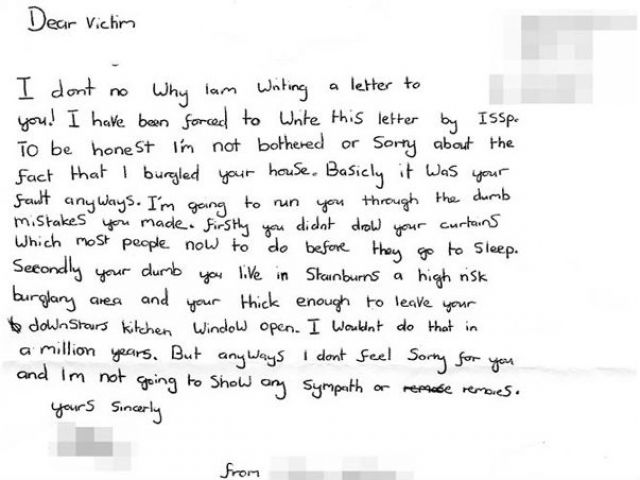 Dear Victim
I dont no Why Iam Writing a letter to
you! I have been forced to Write this letter by ISSp.
To be honest I'm not bothered or Sorry about the
fact that I burgled your house. Basicly it was your
fault anyways. I'm going to run you through the dumb
mistakes you made. firstly you didnt draw your curtains
Which most people now to do before they go to Sleep.
Secondly your dumb you live in Stainburns a high risk
burglary area and your thick enough to leave your
downstairs kitchen Window open. I Wouldnt do that in
a million years. But anyways I dont feel Sorry for you
and Im not going to show any Sympath or remose remores.
yours Sincerly
from